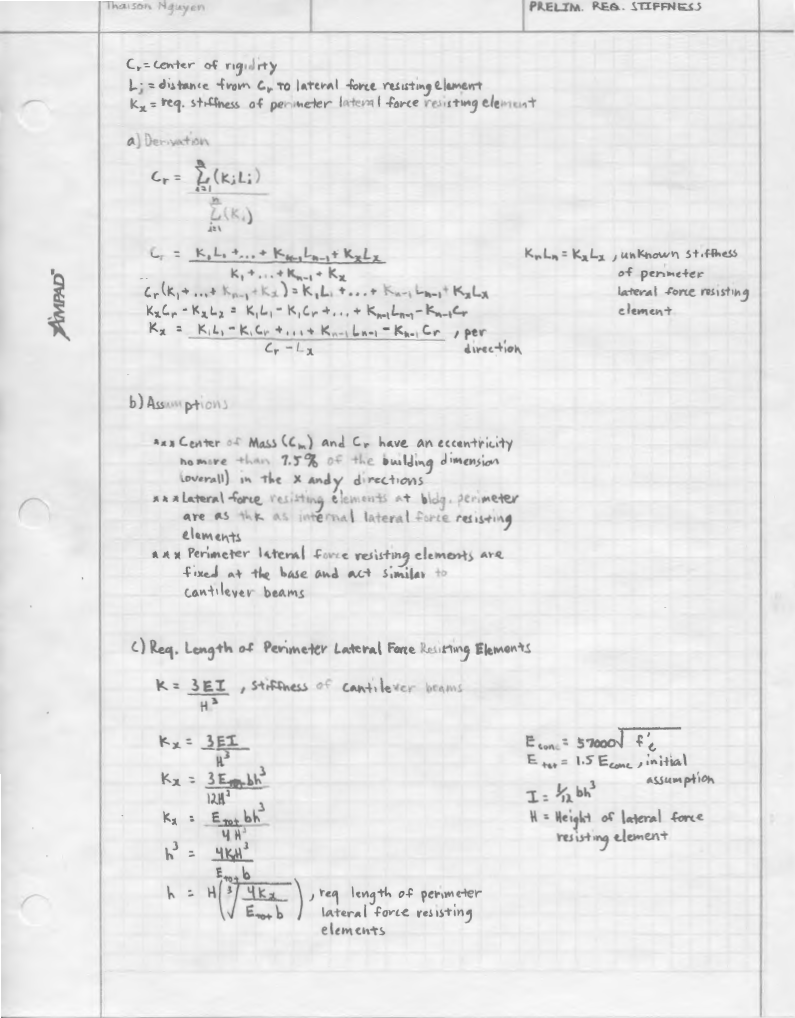 Thaison Nguyen
PRELIM. REQ. STIFFNESS
Cr = center of rigidity
Li = distance from Cr to lateral force resisting element
Kx = req. stiffness of perimeter lateral force resisting element
a) Derivation
Cr = n Σ i=1 (KiLi)
n Σ i=1 (Ki)
Cr = K1L1 + ... + Kn-1Ln-1 + KxLx
K1 + ... + Kn-1 + Kx
KnLn = KxLx , unknown stiffness
of perimeter
lateral force resisting
element
Cr(K1 + ... + Kn-1 + Kx) = K1L1 + ... + Kn-1Ln-1 + KxLx
KxCr - KxLx = K1L1 - K1Cr + ... + Kn-1Ln-1 - Kn-1Cr
Kx = K1L1 - K1Cr + ... + Kn-1Ln-1 - Kn-1Cr , per
Cr - Lx direction
AMPAD™
b) Assumptions
*** Center of Mass (Cm) and Cr have an eccentricity
no more than 7.5% of the building dimension
(overall) in the x and y directions
*** Lateral force resisting elements at bldg. perimeter
are as thk as internal lateral force resisting
elements
*** Perimeter lateral force resisting elements are
fixed at the base and act similar to
cantilever beams
C) Req. Length of Perimeter Lateral Force Resisting Elements
K = 3EI , stiffness of cantilever beams
H³
Kx = 3EI
H³
Kx = 3Etot bh³
12H³
Kx = Etot bh³
4H³
h³ = 4KH³
Etot b
h = H(³√ 4Kx / Etot b) , req length of perimeter
lateral force resisting
elements
Econc = 57000√f'c
Etot = 1.5 Econc , initial
assumption
I = 1/12 bh³
H = Height of lateral force
resisting element